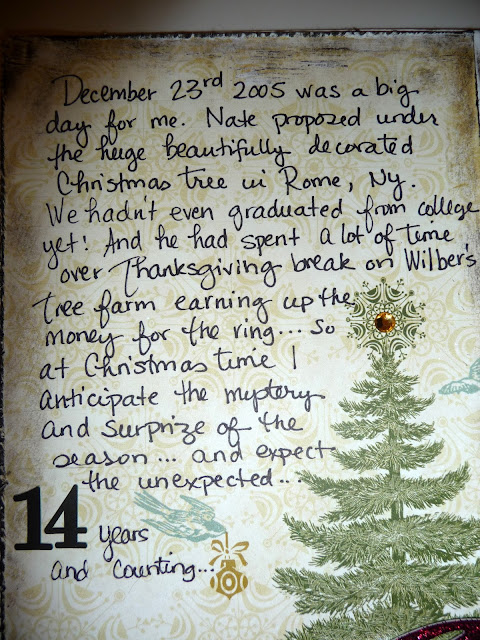 December 23rd 2005 was a big
day for me. Nate proposed under
the huge beautifully decorated
Christmas tree in Rome, Ny.
We hadn't even graduated from college
yet! And he had spent a lot of time
over Thanksgiving break on Wilber's
tree farm earning up the
money for the ring... So
at Christmas time I
anticipate the mystery
and surprize of the
season... and expect
the unexpected...
14 years
and counting...